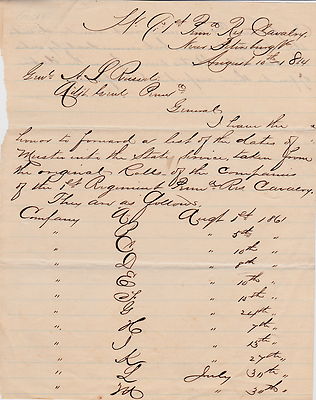 Hd. Qrs 1st Penna Res Cavalry
Near Petersburg Va
August 10th 1864
Genl A L Russell
Adjt Genl Penna
General
I have the
honor to forward a list of the dates of
Muster into the State Service taken from
the original Rolls of the Companies
of the 1st Regiment Penna Res Cavalry.
They are as follows.
Company A Augt 1st 1861
" B " 5th "
" C " 10th "
" D " 8th "
" E " 10th "
" F " 15th "
" G " "
" H " 7th "
" I " 15th "
" K " 27th "
" L July 30th "
" M " 30th "